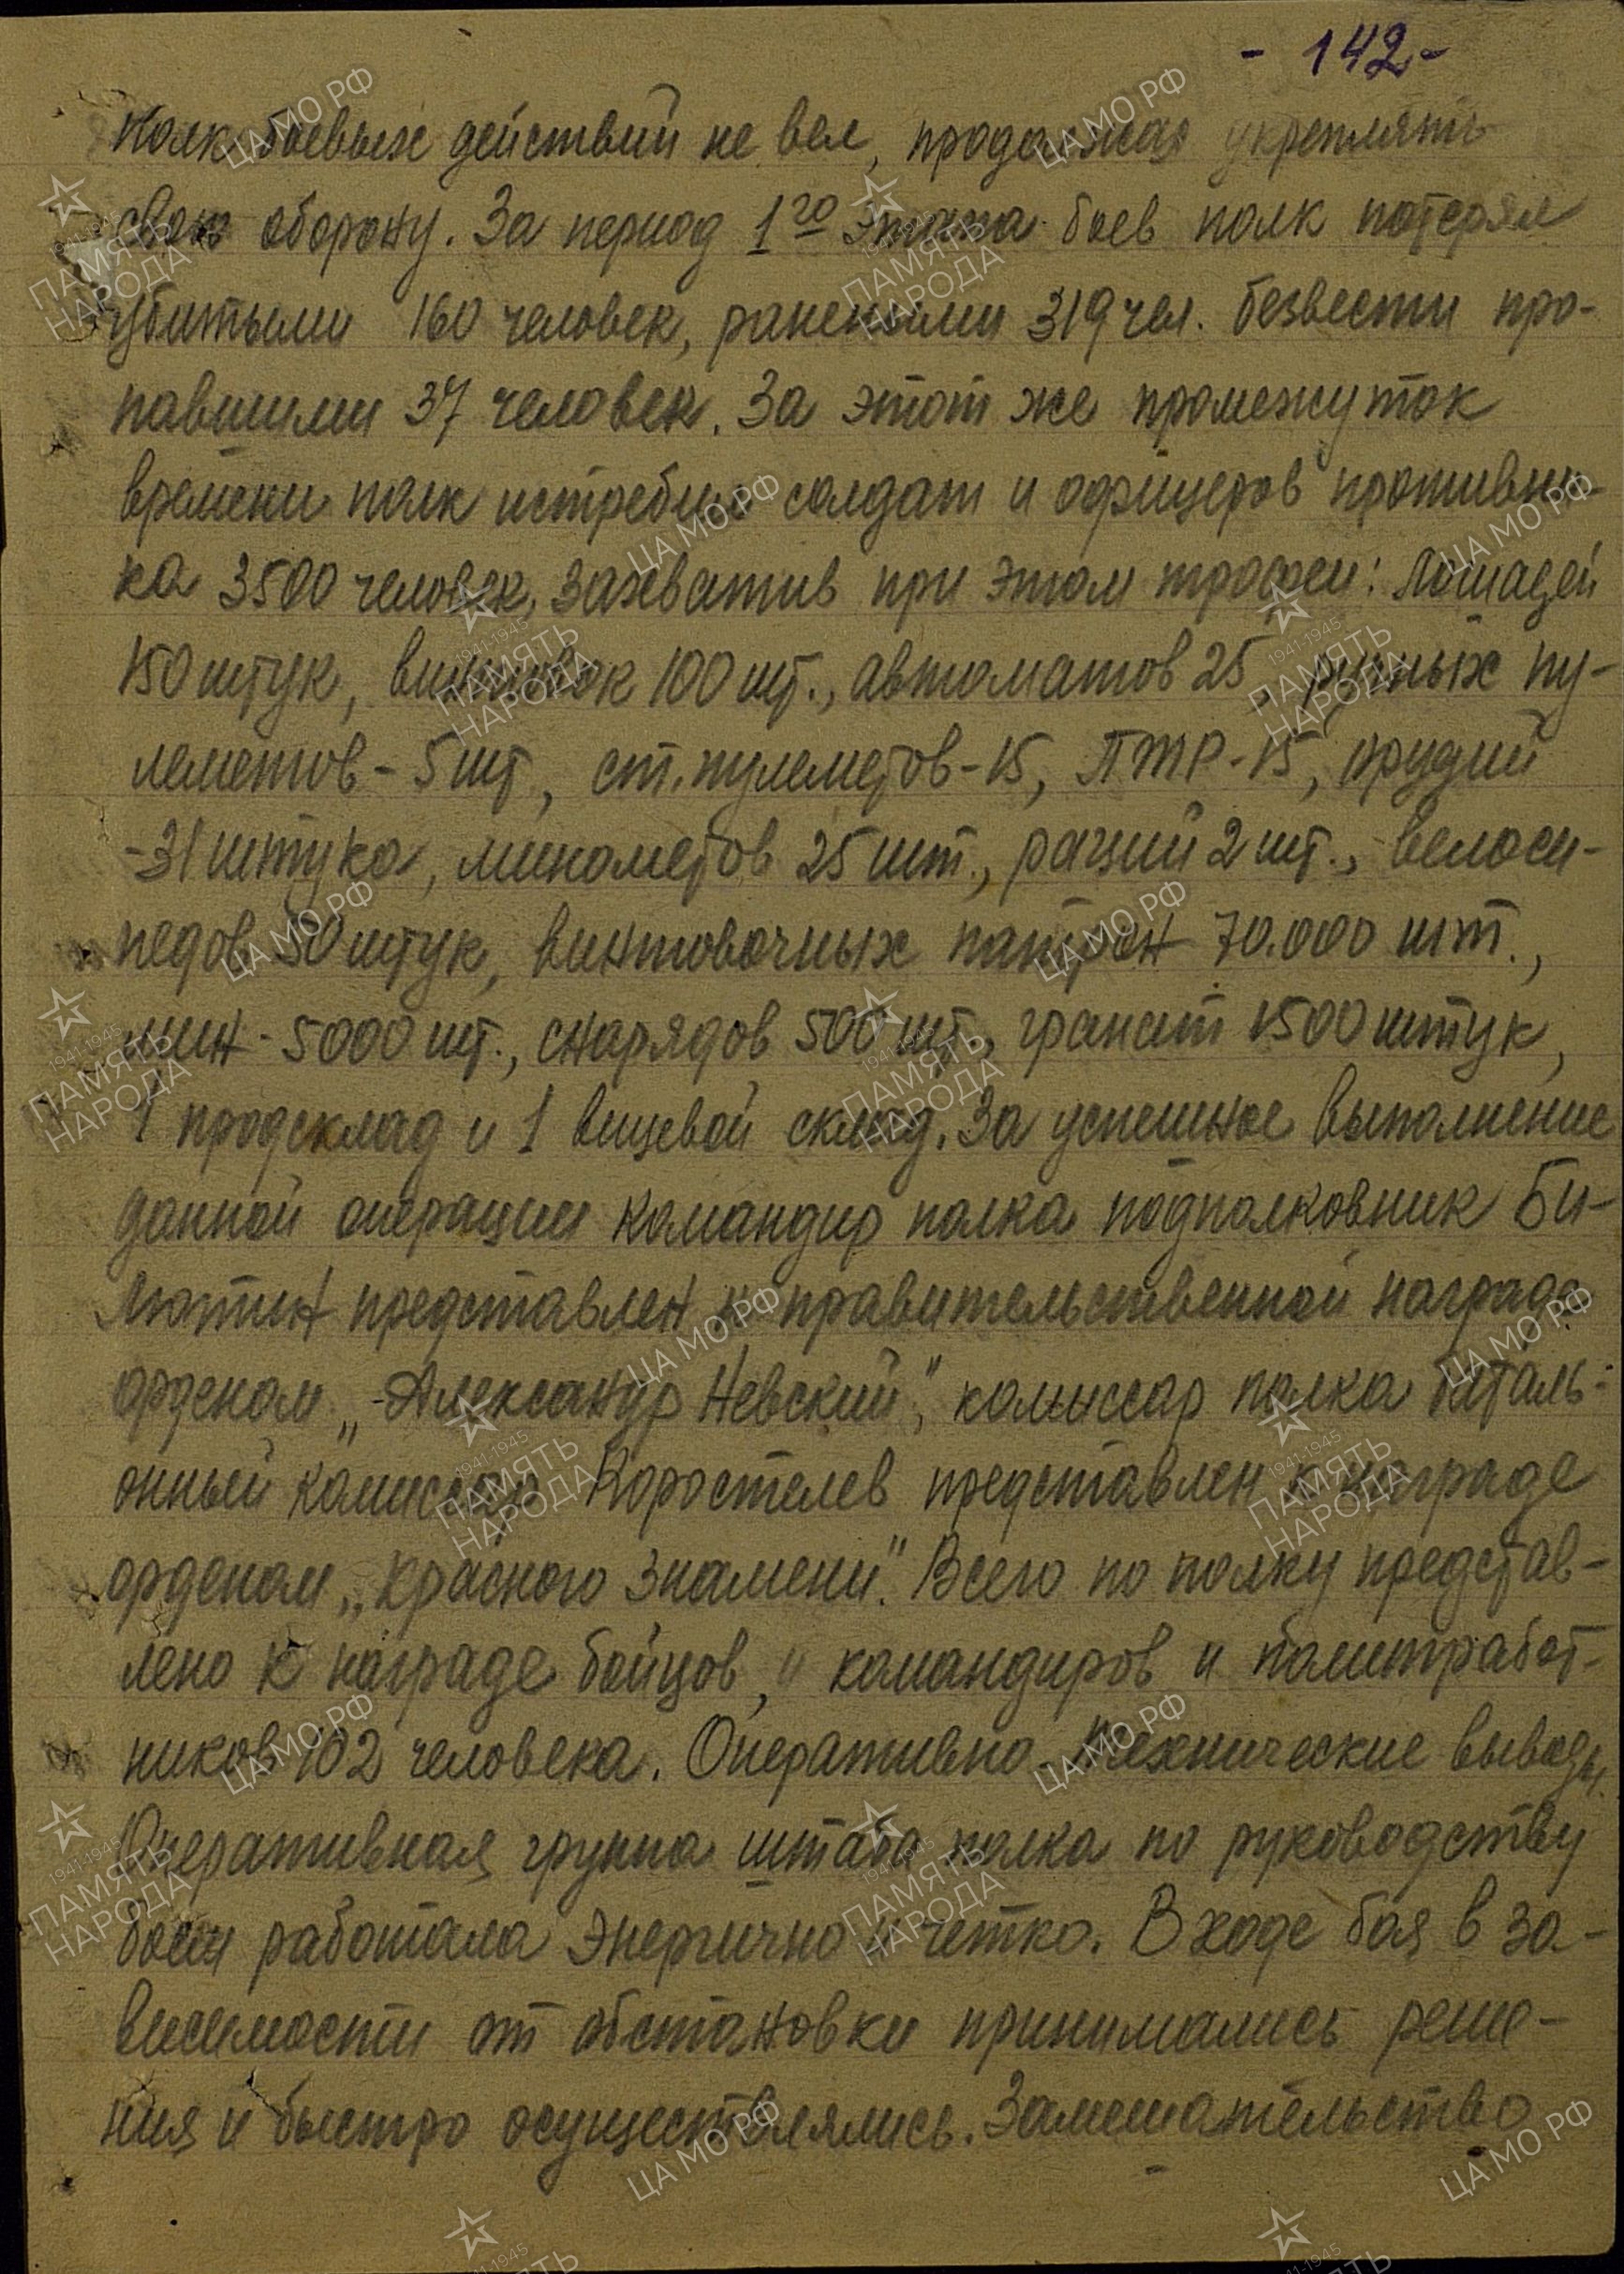 - 142 -
Полк боевых действий не вел, продолжая укреплять
свою оборону. За период 1го этапа боев полк потерял
убитыми 160 человек, ранеными 319 чел. безвести про-
павшими 37 человек. За этот же промежуток
времени полк истребил солдат и офицеров противни-
ка 3500 человек, захватив при этом трофеи: Лошадей
150 штук, винтовок 100 шт., автоматов 25, ручных пу-
леметов - 5 шт, ст. пулеметов - 15, ПТР - 15, орудий
- 31 штука, минометов 25 шт., раций 2 шт., велоси-
педов 50 штук, винтовочных патрон 70.000 шт.,
мин - 5000 шт., снарядов 500 шт, гранат 1500 штук,
1 продсклад и 1 вещевой склад. За успешное выполнение
данной операции командир полка подполковник Би-
лютин представлен к правительственной награде
орденом „Александр Невский", комиссар полка баталь-
онный комиссар Коростелев представлен к награде
орденом „Красного Знамени". Всего по полку представ-
лено к награде бойцов, и командиров и политработ-
ников 102 человека. Оперативно-технические выводы.
Оперативная группа штаба полка по руководству
боем работала энергично и четко. В ходе боя в за-
висимости от обстановки принимались реше-
ния и быстро осуществлялись. Замешательство
ЦА МО РФ
1941-1945
ПАМЯТЬ
НАРОДА